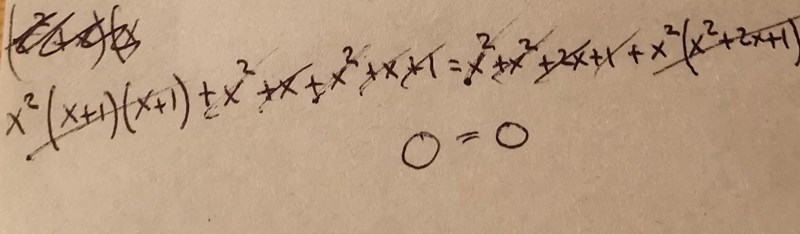 x²(x+1)(x+1) + x² + x + x² + x + 1 = x² + x² + 2x + 1 + x²(x² + 2x + 1)
0 = 0